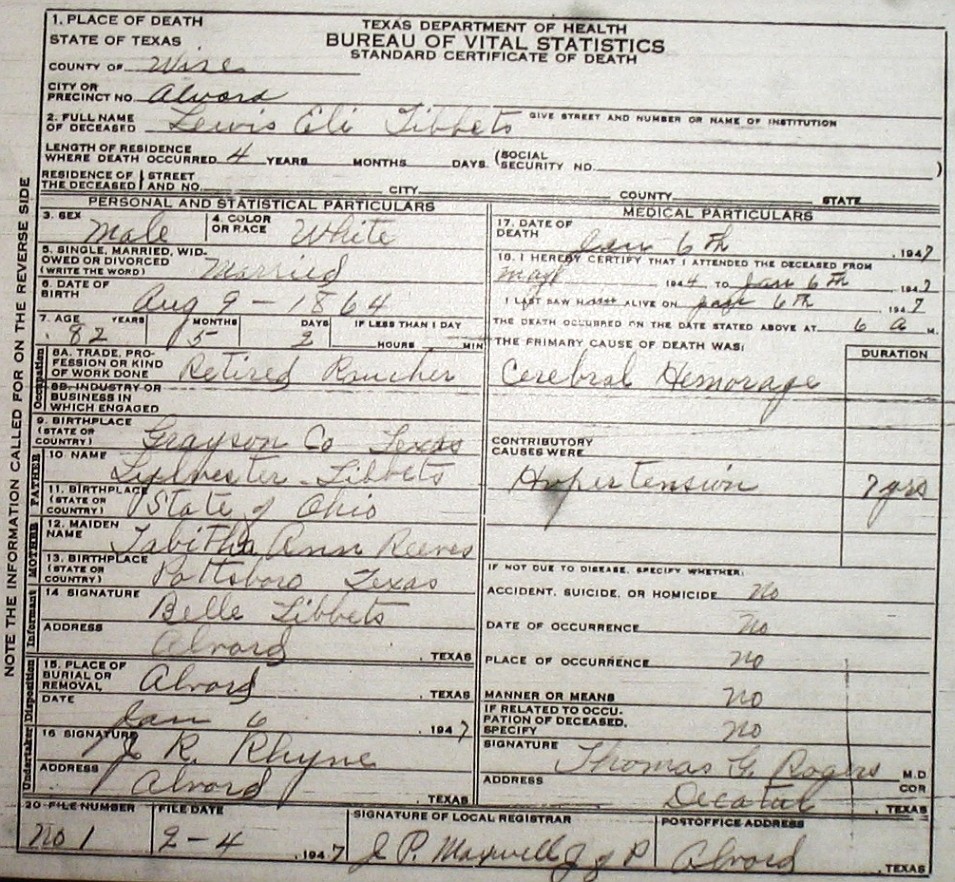 1. PLACE OF DEATH
TEXAS DEPARTMENT OF HEALTH
STATE OF TEXAS
BUREAU OF VITAL STATISTICS
COUNTY OF Wise
STANDARD CERTIFICATE OF DEATH
CITY OR PRECINCT NO. Alvord
2. FULL NAME OF DECEASED Lewis Eli Tibbets GIVE STREET AND NUMBER OR NAME OF INSTITUTION
LENGTH OF RESIDENCE WHERE DEATH OCCURRED 4 YEARS MONTHS DAYS. (SOCIAL SECURITY NO. )
RESIDENCE OF THE DECEASED STREET AND NO. CITY COUNTY STATE
NOTE THE INFORMATION CALLED FOR ON THE REVERSE SIDE
PERSONAL AND STATISTICAL PARTICULARS
3. SEX Male 4. COLOR OR RACE White
5. SINGLE, MARRIED, WIDOWED OR DIVORCED (WRITE THE WORD) Married
6. DATE OF BIRTH Aug 9 - 1864
7. AGE YEARS MONTHS DAYS IF LESS THAN 1 DAY
82 5 3 HOURS MIN
Occupation
8A. TRADE, PROFESSION OR KIND OF WORK DONE Retired Rancher
8B. INDUSTRY OR BUSINESS IN WHICH ENGAGED
9. BIRTHPLACE (STATE OR COUNTRY) Grayson Co Texas
FATHER
10. NAME Sylvester Tibbets
11. BIRTHPLACE (STATE OR COUNTRY) State of Ohio
MOTHER
12. MAIDEN NAME Tabitha Ann Reeves
13. BIRTHPLACE (STATE OR COUNTRY) Pottsboro Texas
Informant
14 SIGNATURE Belle Tibbets
ADDRESS Alvord , TEXAS
Disposition
15. PLACE OF BURIAL OR REMOVAL Alvord , TEXAS
DATE Jan 6 , 1947
Undertaker
16 SIGNATURE J R. Rhyne
ADDRESS Alvord , TEXAS
MEDICAL PARTICULARS
17. DATE OF DEATH Jan 6th , 1947
18. I HEREBY CERTIFY THAT I ATTENDED THE DECEASED FROM
1944 TO Jan 6th 1947
I LAST SAW ALIVE ON Jan 6th 1947
THE DEATH OCCURRED ON THE DATE STATED ABOVE AT 6 a M.
THE PRIMARY CAUSE OF DEATH WAS: DURATION
Cerebral Hemorage
CONTRIBUTORY CAUSES WERE
Hypertension 7 yrs
IF NOT DUE TO DISEASE, SPECIFY WHETHER:
ACCIDENT, SUICIDE, OR HOMICIDE no
DATE OF OCCURRENCE no
PLACE OF OCCURRENCE no
MANNER OR MEANS no
IF RELATED TO OCCUPATION OF DECEASED, SPECIFY no
SIGNATURE Thomas G. Rogers M.D
COR
ADDRESS Decatur , TEXAS
20 FILE NUMBER FILE DATE SIGNATURE OF LOCAL REGISTRAR POSTOFFICE ADDRESS
no 1 2-4 , 1947 J. P. Maxwell J of P Alvord , TEXAS